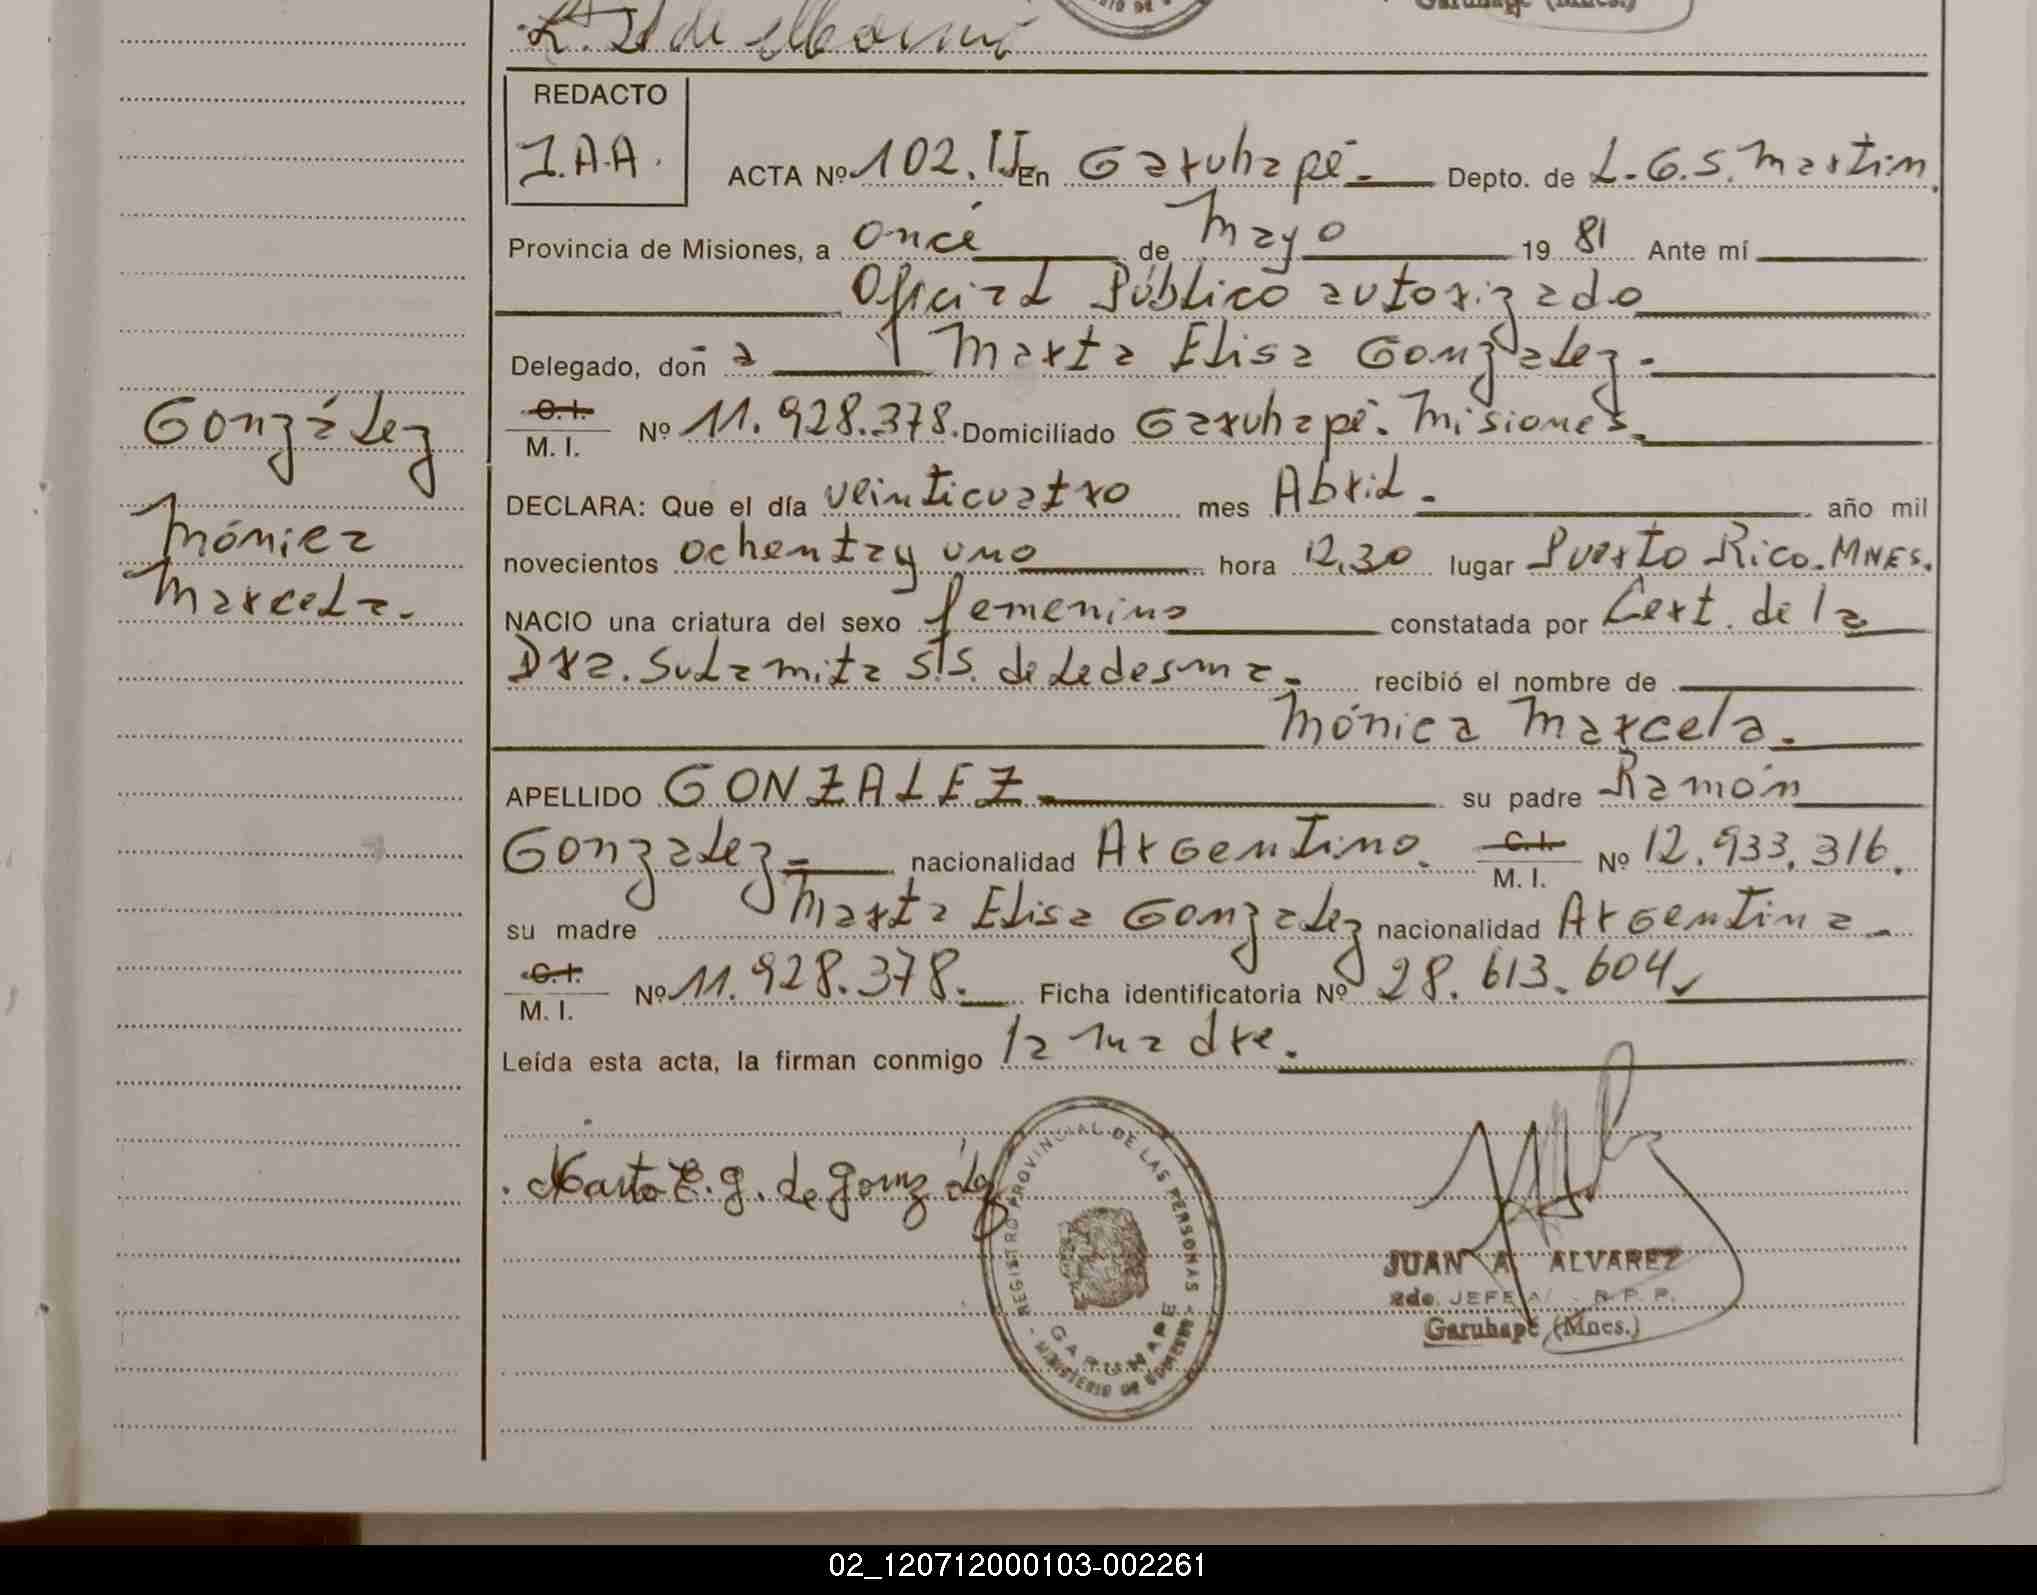 GARUHAPE (Mnes.)
REDACTO
J.A.A.
ACTA Nº 102. II En Garuhapé.- Depto. de L.G.S.Martin.
Provincia de Misiones, a once de Mayo 19 81 Ante mí
Oficial Público autorizado
Delegado, doñ a Marta Elisa González.-
C.I.
M. I. Nº 11.928.378. Domiciliado Garuhapé. Misiones.
González
DECLARA: Que el día veinticuatro mes Abril.- año mil
Mónica
novecientos ochenta y uno hora 12,30 lugar Puerto Rico. MNES.
Marcela.
NACIO una criatura del sexo femenino constatada por Cert. de la
Dra. Sulamita S.S. de Ledesma.- recibió el nombre de
Mónica Marcela.
APELLIDO GONZALEZ.- su padre Ramón
González.- nacionalidad Argentino. C.I.
M. I. Nº 12.933.316.
su madre Marta Elisa González nacionalidad Argentina.-
C.I.
M. I. Nº 11.928.378. Ficha identificatoria Nº 28.613.604
Leída esta acta, la firman conmigo la madre.
Marta E. g. de gonzález
REGISTRO PROVINCIAL DE LAS PERSONAS
GARUHAPE
MINISTERIO DE GOBIERNO
JUAN A. ALVAREZ
2do. JEFE A/ R. P. P.
Garuhapé (Mnes.)
02_120712000103-002261